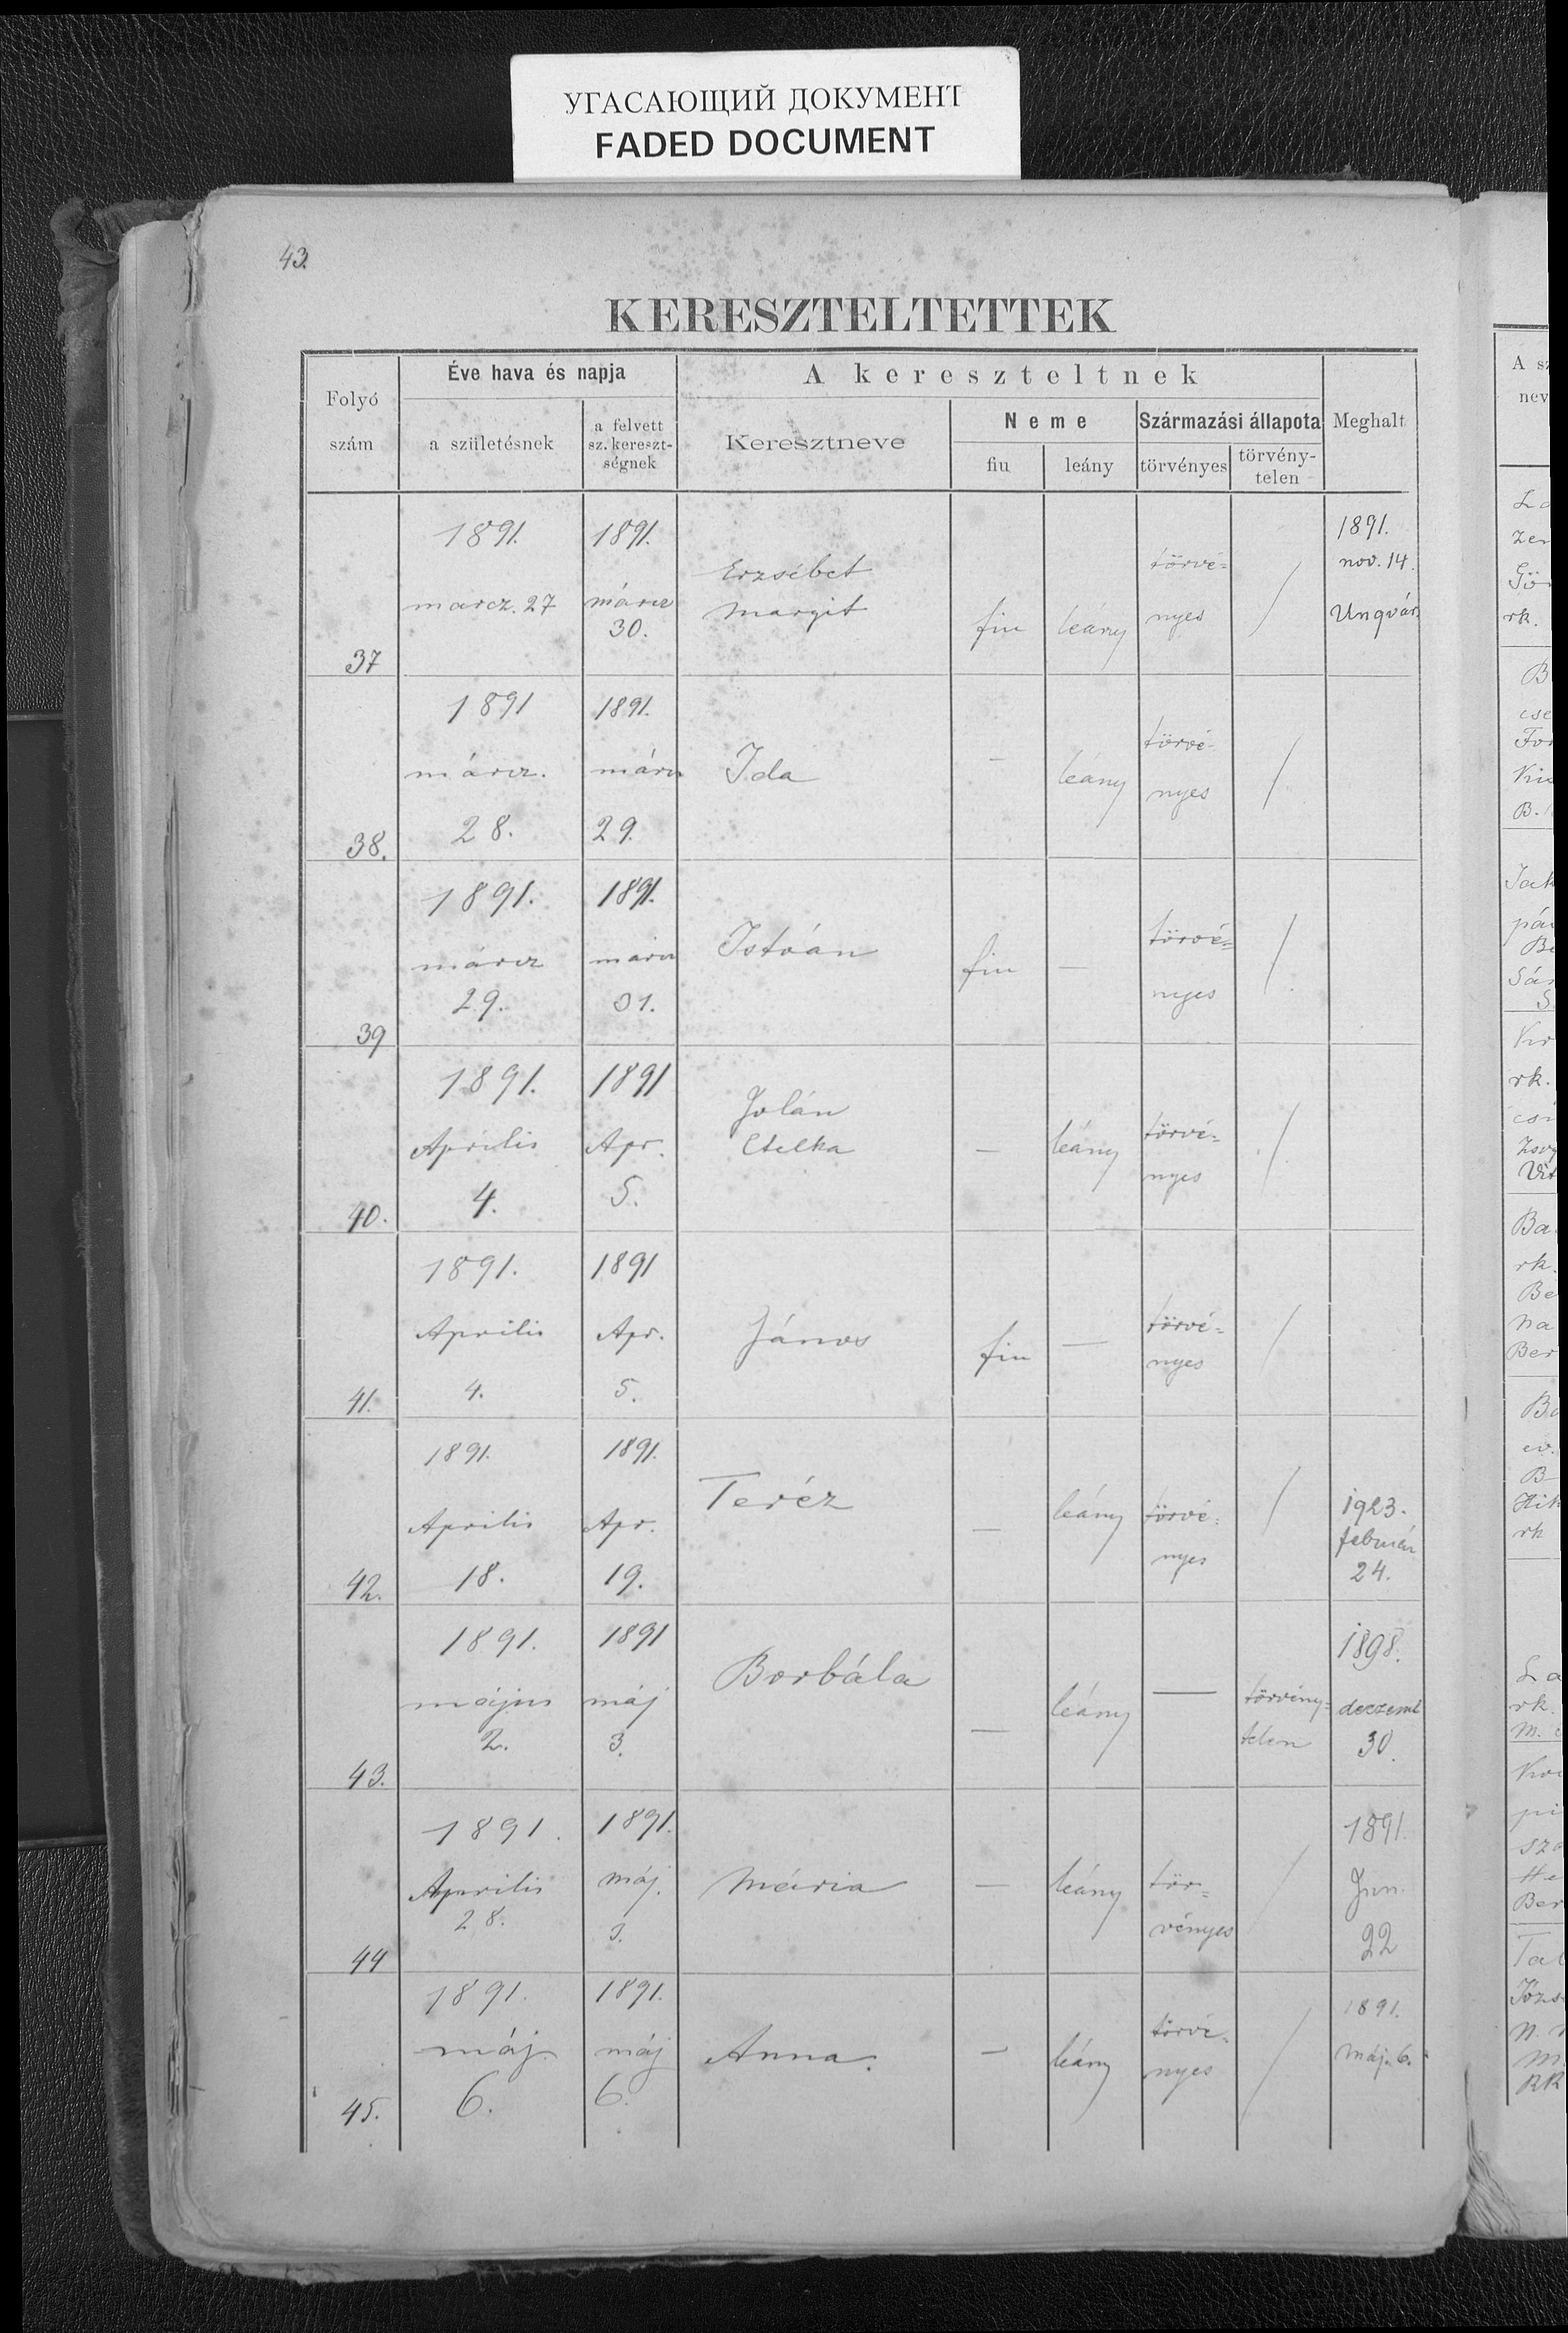 УГАСАЮЩИЙ ДОКУМЕНТ
FADED DOCUMENT
43.
KERESZTELTETTEK
Folyó szám
Éve hava és napja
a születésnek
a felvett sz. kereszt-ségnek
A kereszteltnek
Keresztneve
Neme
fiu
leány
Származási állapota
törvényes
törvény-telen
Meghalt
A sz
nev
37 1891. marcz. 27 1891. márcz 30. Erzsébet Margit fiu leány törvé= nyes / 1891. nov. 14. Ungvár.
38. 1891 márcz. 28. 1891. márcz 29. Ida – leány törvé- nyes /
39 1891. márcz 29. 1891. márcz 31. István fiu — törvé= nyes /
40. 1891. Április 4. 1891 Apr. 5. Jolán Etelka — leány törvé= nyes /
41. 1891. Aprilis 4. 1891 Apr. 5. János fiu — törvé= nyes /
42. 1891. Aprilis 18. 1891. Apr. 19. Teréz — leány törvé= nyes / 1923. február 24.
43. 1891. május 2. 1891 máj 3. Borbála — leány — törvény= telen 1898. deczemb 30.
44 1891. Aprilis 28. 1891. máj. 3. Mária — leány tör= vényes / 1891. Jun. 22
45. 1891. máj. 6. 1891. máj 6. Anna. – leány törvé= nyes / 1891. máj. 6.